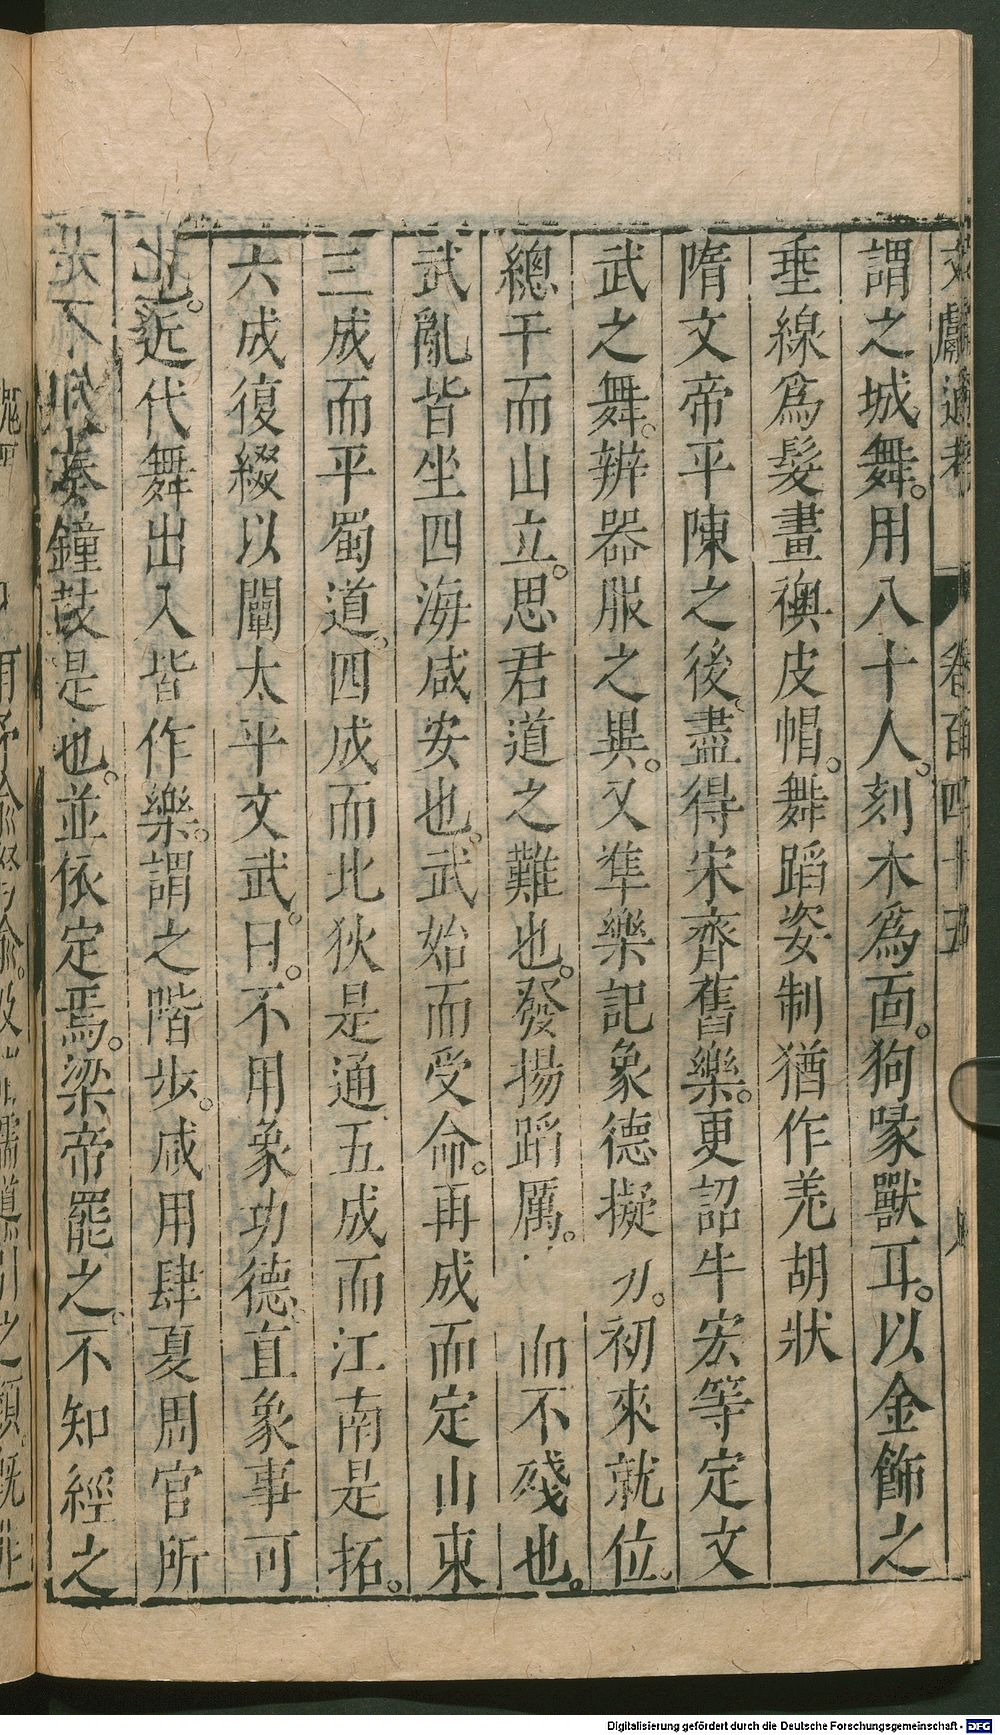 文獻通考 卷百四十五
謂之城舞。用八十人。刻木爲面。狗喙獸耳。以金飾之
垂線爲髮畫襖皮帽。舞蹈姿制猶作羌胡狀
隋文帝平陳之後、盡得宋齊舊樂。更詔牛宏等定文
武之舞。辨器服之異。又準樂記象德擬功。初來就位。
總干而山立。思君道之難也。發揚蹈厲。 而不殘也。
武亂皆坐四海咸安也。武始而受命。再成而定山東
三成而平蜀道。四成而北狄是通五成而江南是拓。
六成復綴以闡太平文武。曰。不用象功德。直象事可
也。近代舞出入皆作樂。謂之階步。咸用肆夏周官所
奏鐘鼓是也。並依定焉。梁帝罷之。不知經之
Digitalisierung gefördert durch die Deutsche Forschungsgemeinschaft - DFG